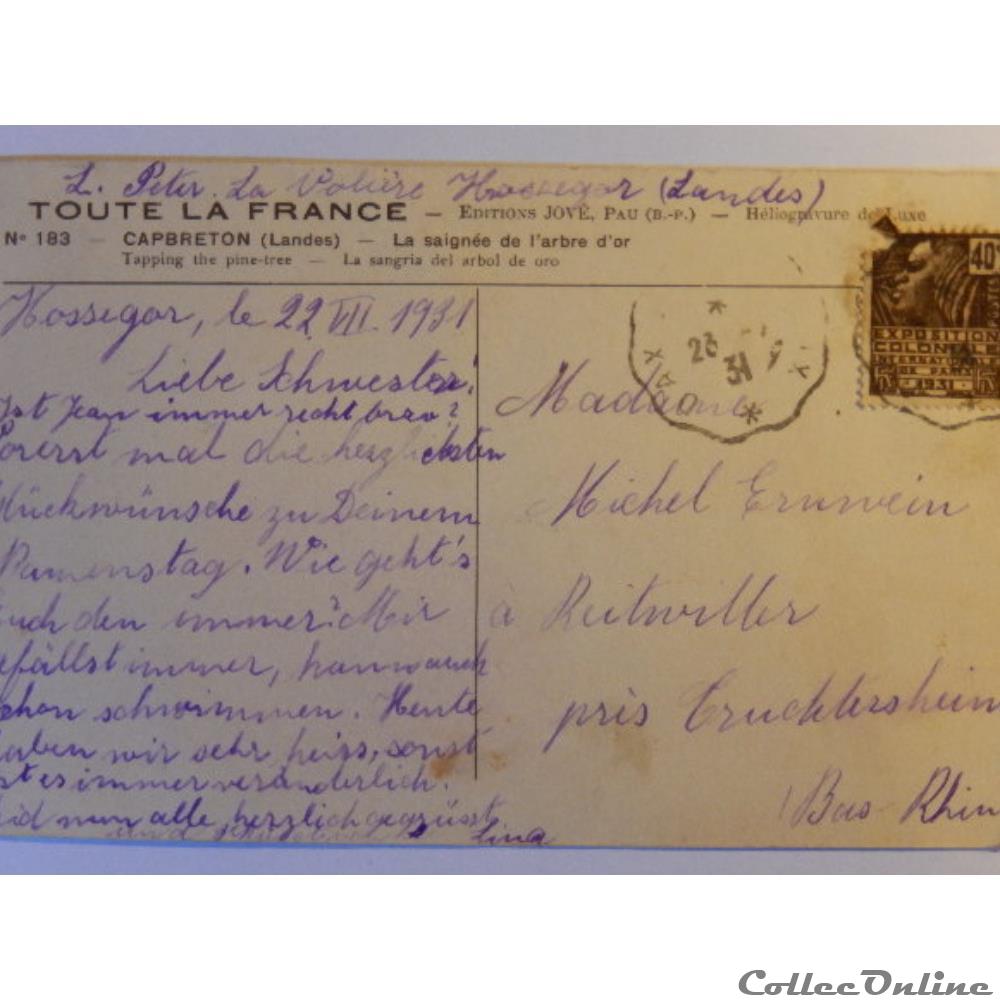 L. Peter. La Volière Hossegor (Landes)
TOUTE LA FRANCE – EDITIONS JOVÉ, PAU (B.-P.) – Héliogravure de Luxe
Nº 183 – CAPBRETON (Landes) – La saignée de l'arbre d'or
Tapping the pine-tree – La sangria del arbol de oro
Hossegor, le 22 VII. 1931
Liebe Schwester!
Ist Jean immer recht brav?
mal die herzlichsten
lückwünsche zu Deinem
Namenstag. Wie geht's
uch den immer? Mir
efällst immer, kann auch
chon schwimmen. Heute
aben wir sehr heiss, sonst
st es immer veränderlich.
eid nun alle herzlich gegrüsst
und
Lina
40
EXPOSITION
COLONIALE
INTERNATIONALE
DE PARIS
1931
23
31
Madame
Michel Ernwein
à Reitwiller
près Truchtersheim
(Bas-Rhin
CollecOnline